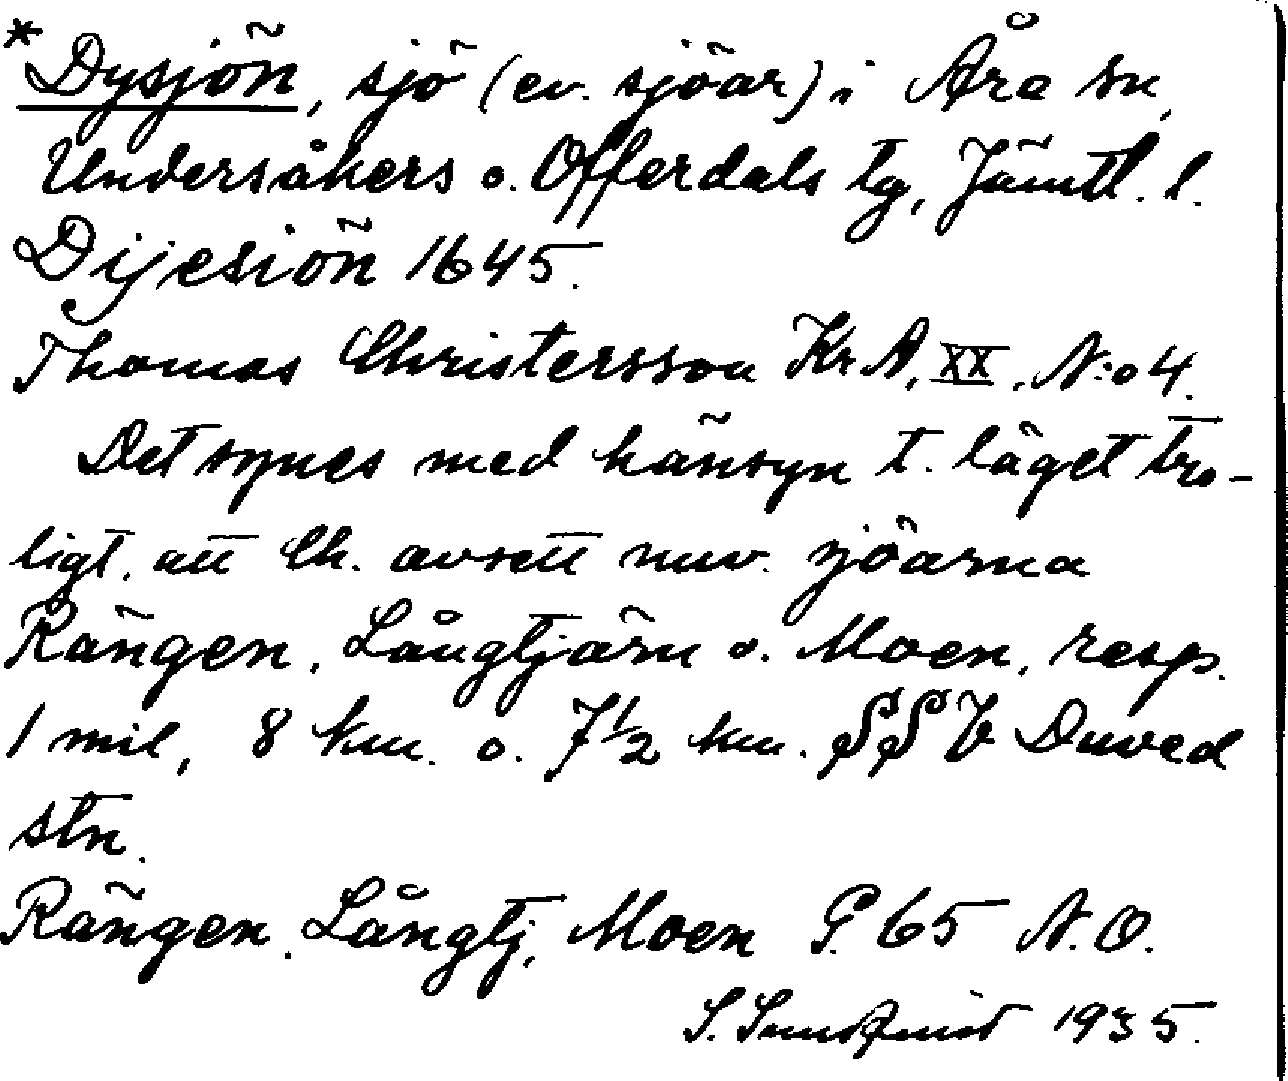 *Dysjön, sjö (ev. sjöar) i Åre sn,
Undersåkers o. Offerdals tg, Jämtl. l.
Dijesiön 1645.
Thomas Christersson Kr. A, XX, N:o 4.
Det synes med hänsyn t. läget tro-
ligt, att Ch. avsett nuv. sjöarna
Rängen, Långtjärn o. Moen, resp.
1 mil, 8 km. o. 7 1/2 km. SSV Duved
stn.
Rängen, Långtj, Moen G. 65 N.O.
S. Sundquist 1935.